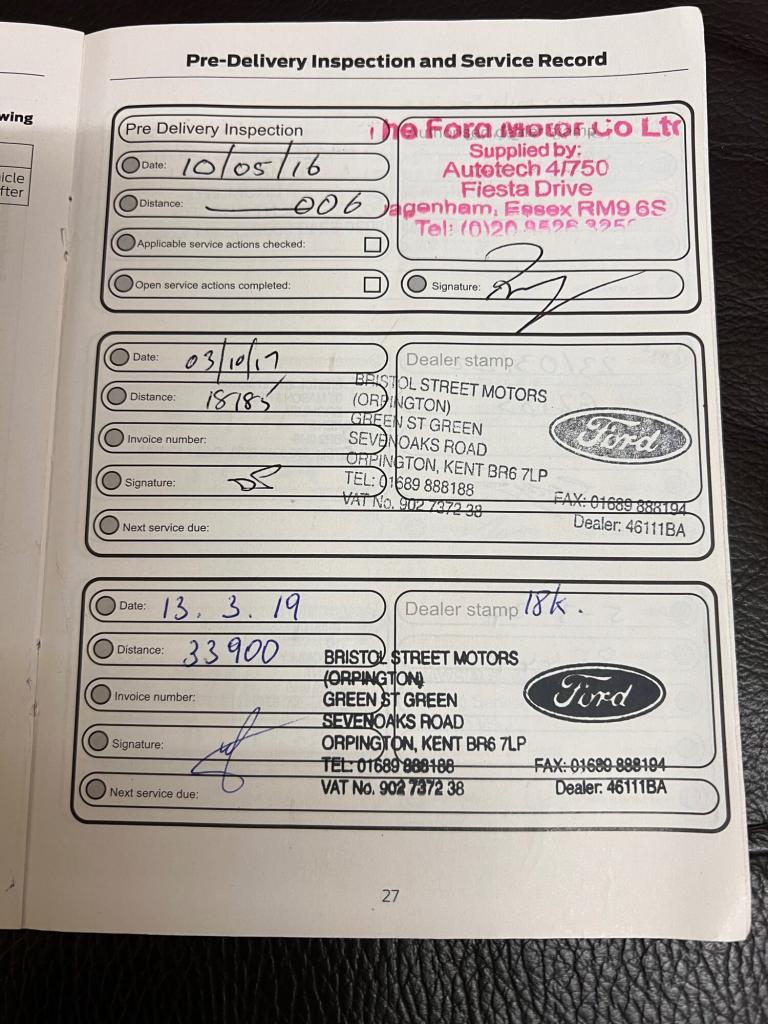 wing
icle
fter
Pre-Delivery Inspection and Service Record
Pre Delivery Inspection
Date: 10/05/16
Distance: 006
Applicable service actions checked:
Open service actions completed:
he Ford Motor Co Ltd
Supplied by:
Autotech 4/750
Fiesta Drive
agenham, Essex RM9 6S
Tel: (0)20
Signature:
Date: 03/10/17
Distance: 18185
Invoice number:
Signature:
Next service due:
Dealer stamp
BRISTOL STREET MOTORS
(ORPINGTON)
GREEN ST GREEN
SEVENOAKS ROAD
ORPINGTON, KENT BR6 7LP
TEL: 01689 888188
VAT No. 902 7372 38
Ford
FAX: 01689 888194
Dealer: 46111BA
Date: 13. 3. 19
Distance: 33900
Invoice number:
Signature:
Next service due:
Dealer stamp 18k.
BRISTOL STREET MOTORS
(ORPINGTON)
GREEN ST GREEN
SEVENOAKS ROAD
ORPINGTON, KENT BR6 7LP
TEL: 01689 888188
VAT No. 902 7372 38
Ford
FAX: 01689 888194
Dealer: 46111BA
27